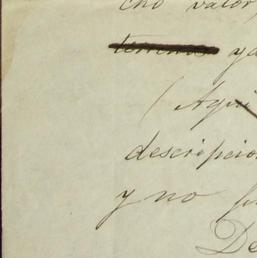 cho valor,
terrenos ya
(Aqui
descripcio
y no
De